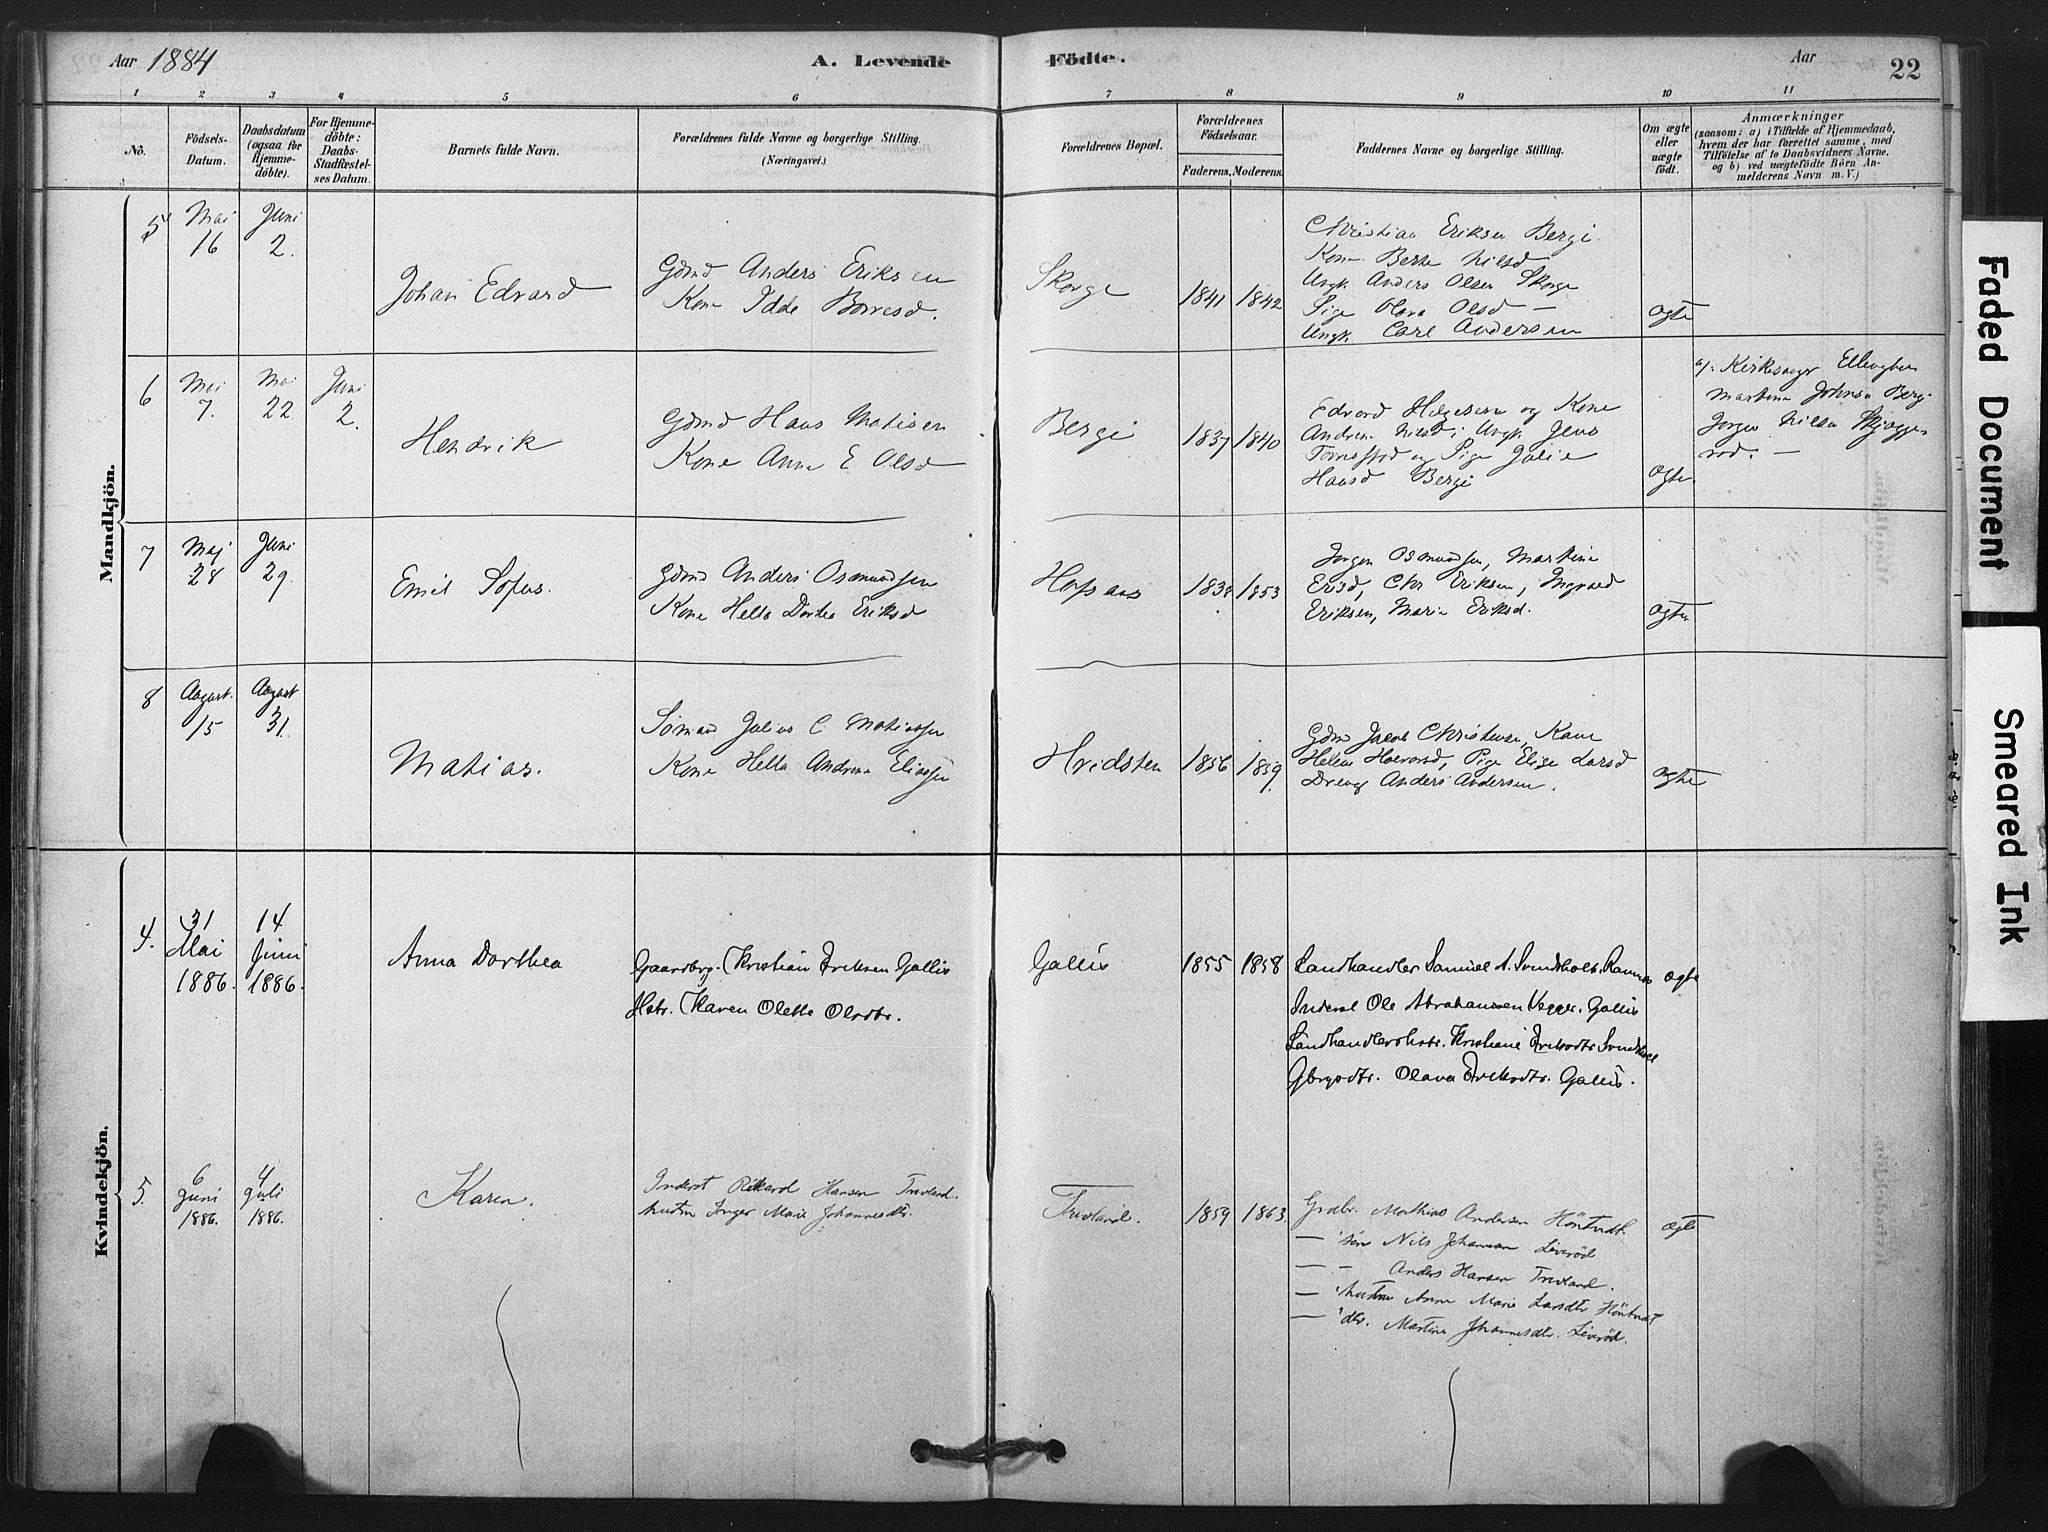 Aar 1884
A. Levende Födte.
Aar
22
1 2 3 4 5 6 7 8 9 10 11
No.
Födsels-Datum.
Daabsdatum (ogsaa for Hjemme-döbte).
For Hjemme-döbte: Daabs-Stadfæstel-ses Datum.
Barnets fulde Navn.
Forældrenes fulde Navne og borgerlige Stilling.
(Næringsvei.)
Forældrenes Bopæl.
Forældrenes Födselsaar.
Faderens. Moderens.
Faddernes Navne og borgerlige Stilling.
Om ægte eller uægte födt.
Anmærkninger
(saasom: a) i Tilfælde af Hjemmedaab,
hvem der har forrettet samme, med
Tilföielse af to Daabsvidners Navne,
og b) ved uægtefödte Börn An-
melderens Navn m. V.)
Mandkjön.
5
Mai 16
Juni 2.
Johan Edvard
Gdmd Anders Eriksen
Kone Idde Borresd.
Skorge
1841 1842
Christian Eriksen Berge
Kone Berte Nilsd
Ungk Anders Olsen Skorge
Pige Olava Olsd —
Ungk Carl Andersen
ægte
6
Mai 7.
Mai 22
Juni 2.
Hendrik
Gdmd Hans Matisen
Kone Anne E Olsd
Berge
1837 1840
Edvard Helgesen og Kone
Andrea Nilsd; Ungk Jens
og Pige Julie
Hansd Berge
ægte
a/. Kirkesanger
Martin Johnsen Berg
Jørgen Nilsen
rød. —
7
Maj 28
Juni 29.
Emil Sofus.
Gdmd Anders Osmundsen
Kone Helle Dorthea Eriksd
1853
Jørgen Osmundsen, Martine
Ersd, Chr Eriksen, Ingvald
Eriksen, Maria Eriksd.
ægte
8
August. 15
August 31.
Matias.
Sømand Julius C Matiassen
Kone Helle Andrea
Hvidsten
1856 1859.
Gdm Jacob Christensen, Kone
Helene Halvorsd, Pige Elise Larsd
Dreng Anders Andersen.
ægte
Kvindekjön.
4.
31 Mai 1886.
14 Juni 1886.
Anna Dorthea
Gaardbrg. Kristian Eriksen Gallis
Hstr. Karen Olette Olsdtr.
Gallis
1855 1858
Landhandler Samuel A. Svendsholt. Ramnæs
Inderst Ole Abrahamsen Vegger. Gallis
Landhandlershstr. Kristiane Eriksdtr Svendsholt
Gbrgsdtr. Olava Eriksdtr. Gallis.
ægte
5.
6 Juni 1886.
4 Juli 1886.
Karen.
Inderst Rikard Hansen Trevland.
hustru Inger Marie Johannesdtr.
Trevland.
1859 1863.
Grdbr. Mathias Andersen Höntvedt.
— sön Nils Johansen Liveröd
— - Anders Hansen Trevland.
— hustru Anne Marie Larsdtr Höntvedt
— dtr. Martine Johannesdtr. Liveröd.
ægte
Faded Document
Smeared Ink